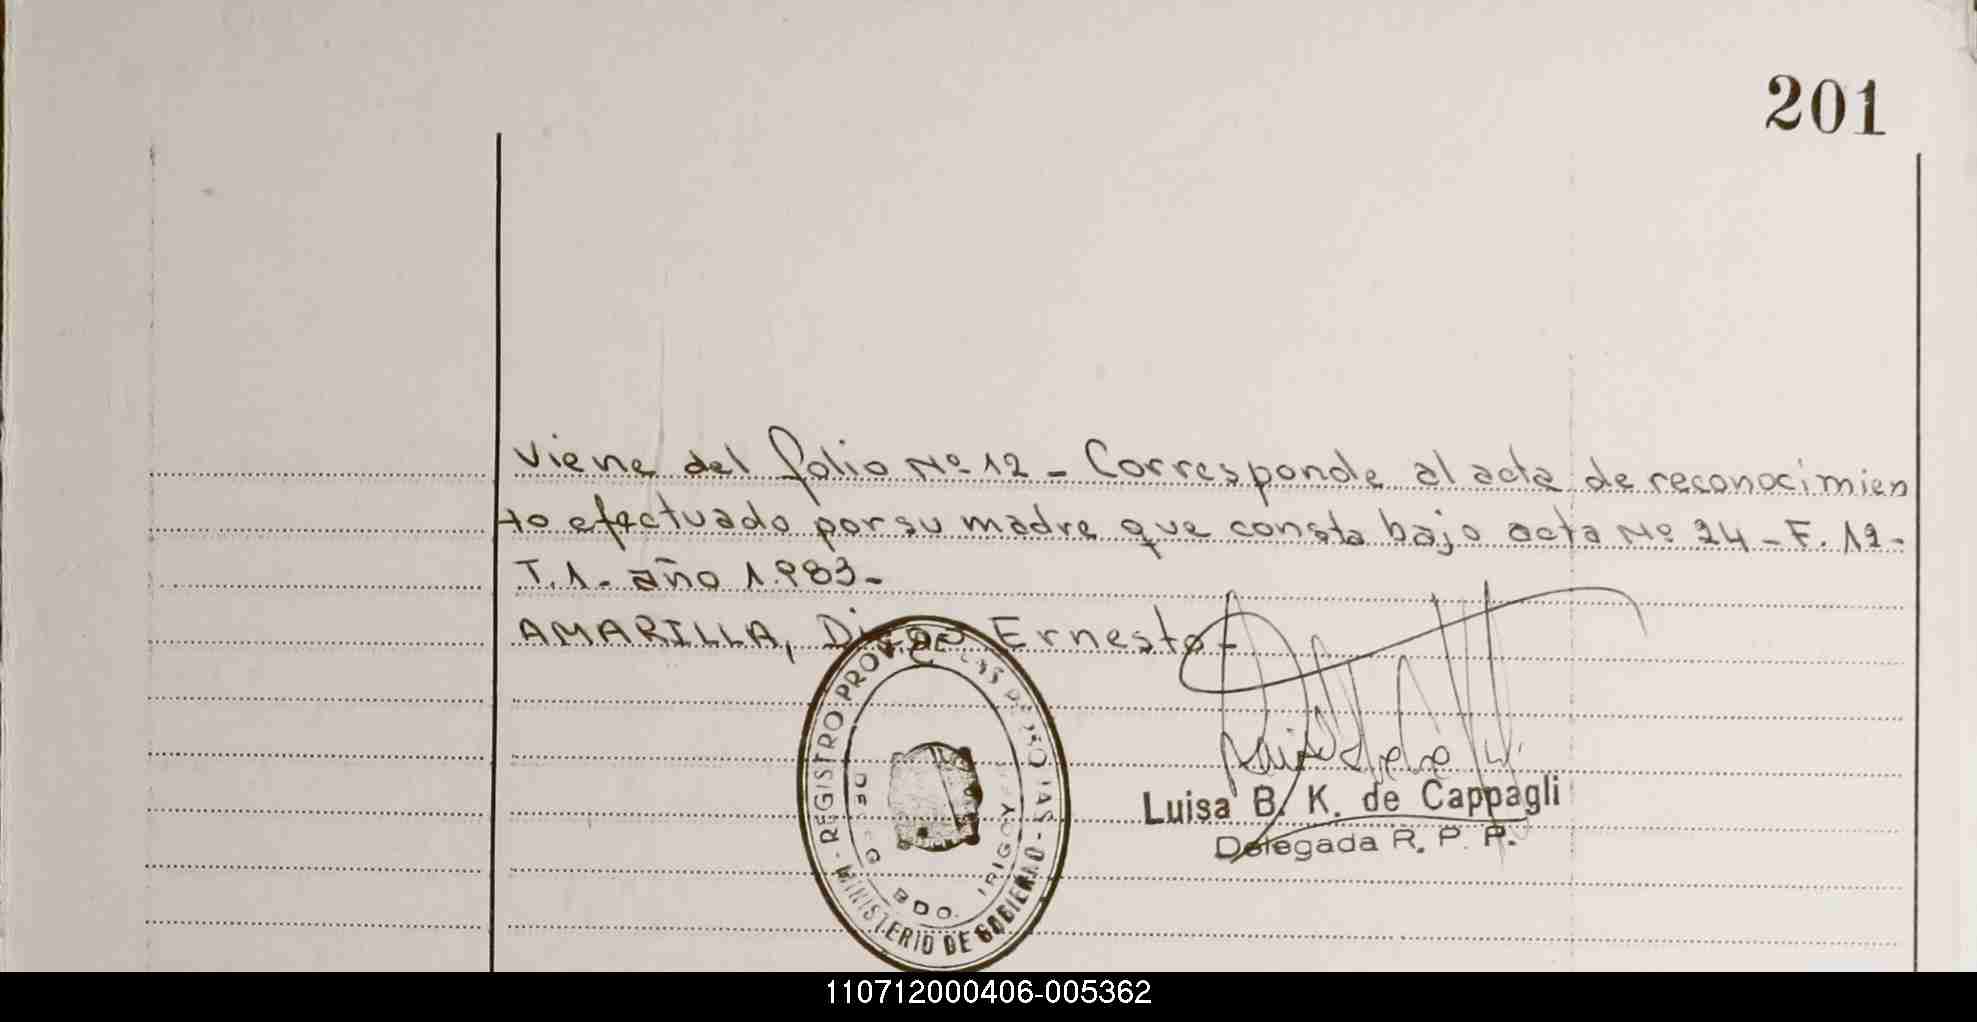 201
Viene del folio Nº 12 - Corresponde al acta de reconocimien
to efectuado por su madre que consta bajo acta Nº 24 - F. 12 -
T. 1 - año 1.983 -
AMARILLA, Diego Ernesto -
REGISTRO PROV. DE LAS PERSONAS - MINISTERIO DE GOBIERNO -
BDO. IRIGOYEN
Luisa B. K. de Cappagli
Delegada R. P. P.
110712000406-005362